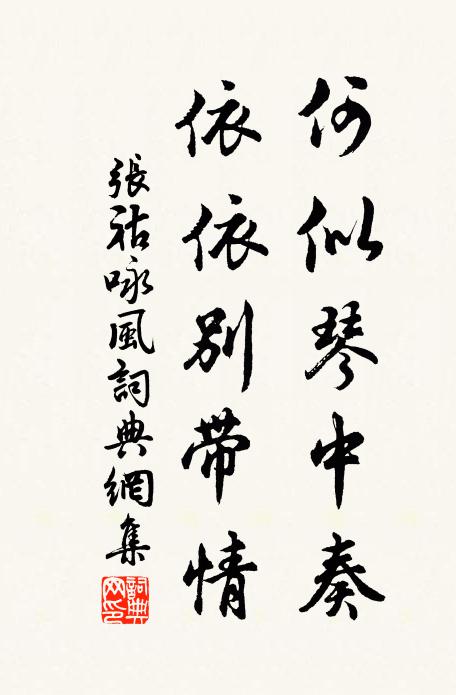 何似琴中奏
依依别带情
張祜咏風詞典網集
詞典网印